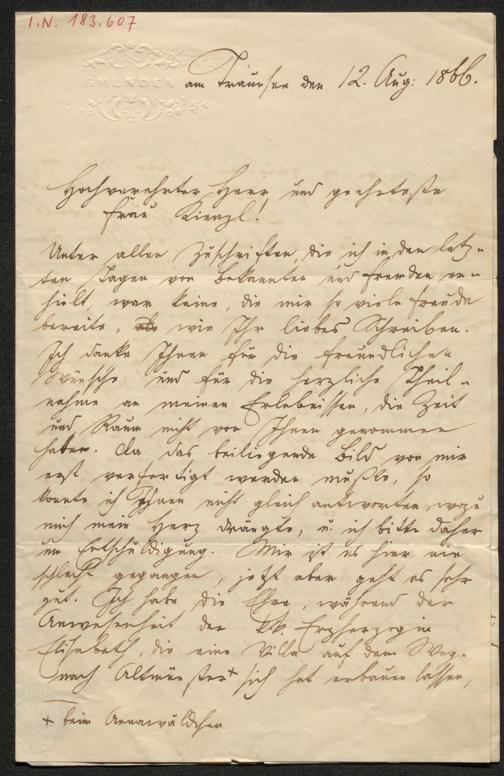 I.N. 183.607
GMUNDEN
am Traunsee den 12. Aug: 1866.
Hochverehrter Herr und geehrteste
Frau Kienzl!
Unter allen Zuschriften, die ich in den letz-
ten Tagen von Bekannten und Fremden er-
hielt, war keine, die mir so viele Freude
bereite, wie Ihr liebes Schreiben.
Ich danke Ihnen für die freundlichen
Wünsche und für die herzliche Theil-
nahme an meinen Erlebnissen, die Zeit
und Raum nicht von Ihnen genommen
haben. Da das beiliegende Bild von mir
erst verfertigt werden mußte, so
konnte ich Ihnen nicht gleich antworten, wozu
mich mein Herz drängte, u. ich bitte daher
um Entschuldigung. Mir ist es hier nie
schlecht gegangen, jetzt aber geht es sehr
gut. Ich habe die Ehre, während der
Anwesenheit der kk Erzherzogin
Elisabeth, die eine Villa auf dem Weg-
nach Altmünster + sich hat erbauen lassen,
+ beim Annawäldchen